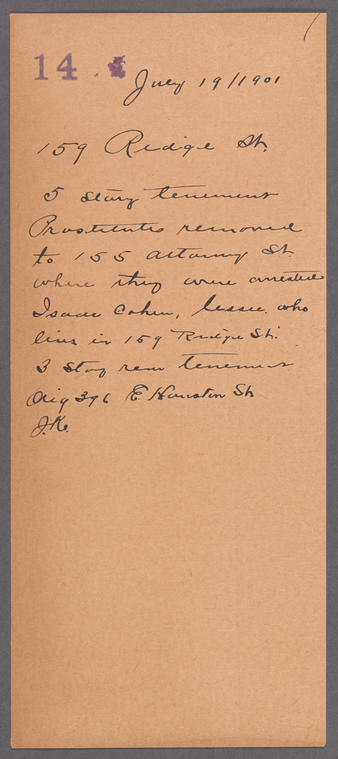 14
July 19/1901
159 Ridge St.
5 story tenement
Prostitutes removed
to 155 Attorney St.
where they were arrested
Isaac Cohen, lessee who
lives in 159 Ridge St.
3 Story rear tenement
396 E Houston St
J.K.